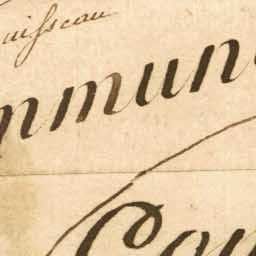 uisseau
mmun
Con